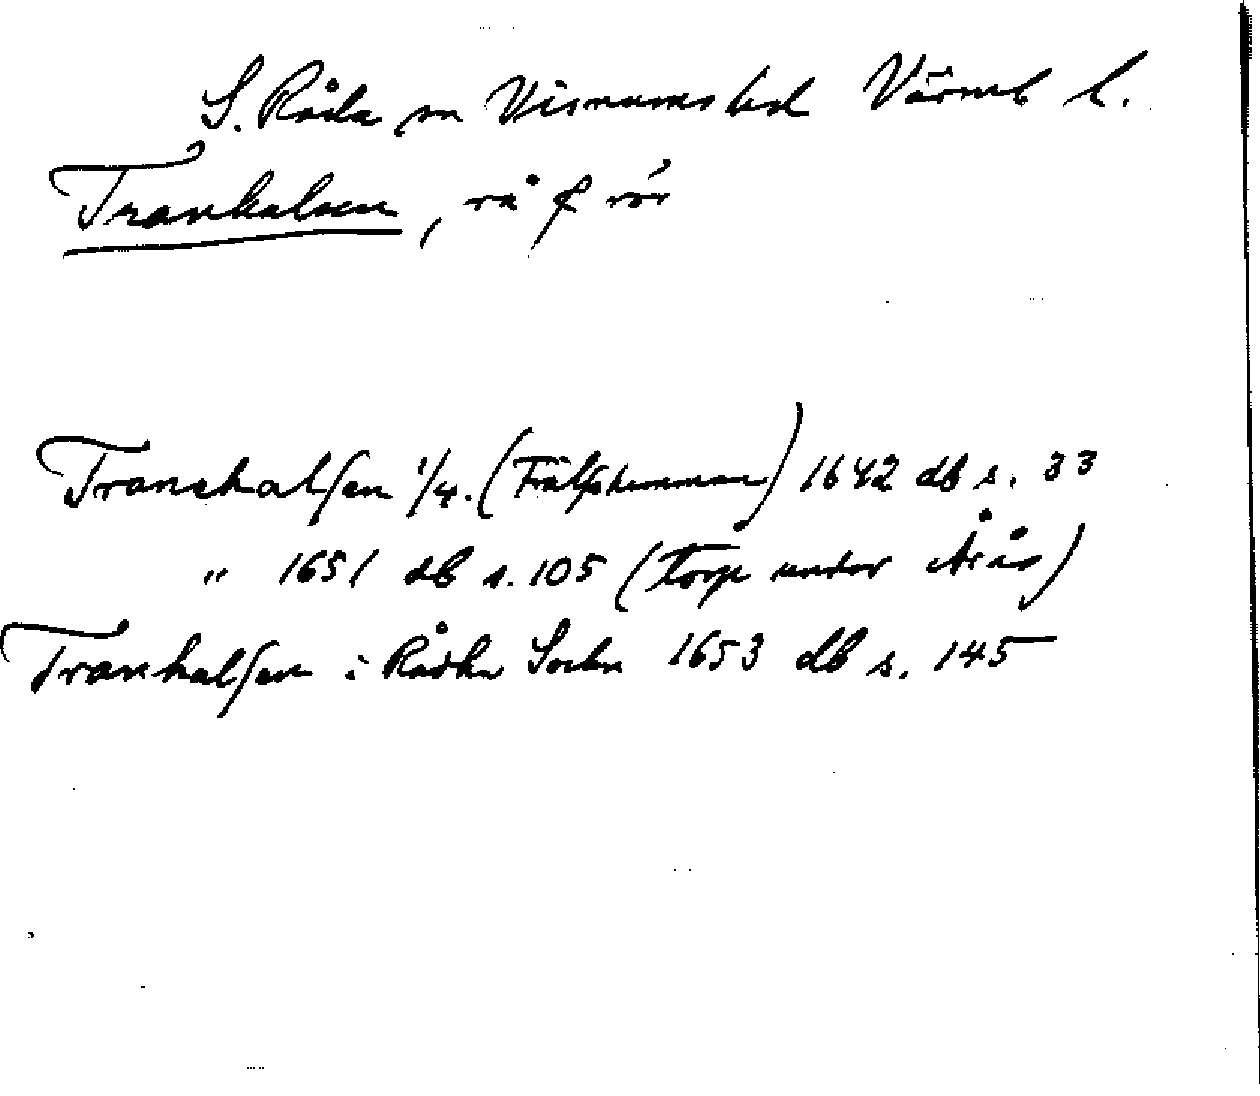 S. Råda sn Visnums hd Värml l.
Tranhalsen, rå o rör
Tranehalsen 1/4. (Frälsehemman) 1642 db s. 33
" 1651 db s. 105 (torp under Årås)
Tranhalsen i Råda Sochn 1653 db s. 145